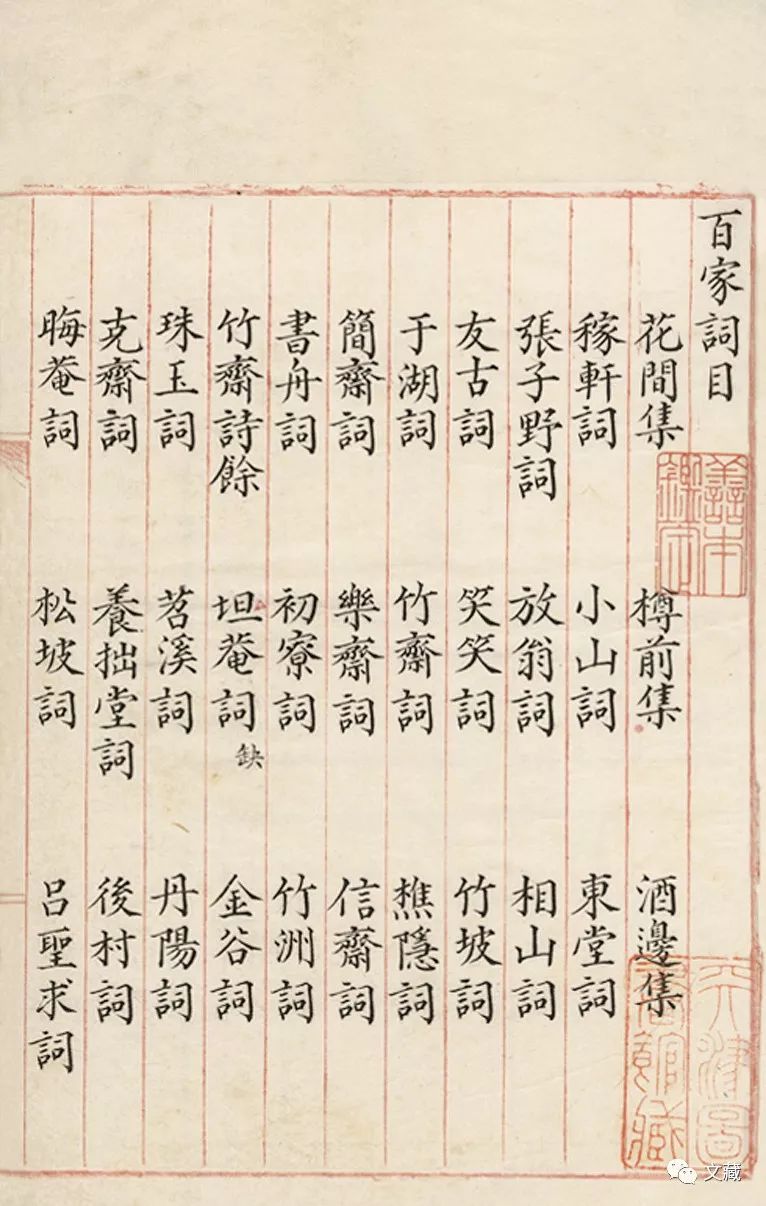 百家詞目
花間集 樽前集 酒邊集
稼軒詞 小山詞 東堂詞
張子野詞 放翁詞 相山詞
友古詞 笑笑詞 竹坡詞
于湖詞 竹齋詞 樵隱詞
簡齋詞 樂齋詞 信齋詞
書舟詞 初寮詞 竹洲詞
竹齋詩餘 坦菴詞 缺 金谷詞
珠玉詞 苕溪詞 丹陽詞
克齋詞 養拙堂詞 後村詞
晦菴詞 松坡詞 呂聖求詞
善本
天津圖
書館藏
文藏